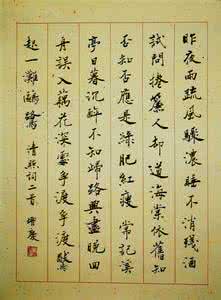 昨夜雨疏風驟濃睡不消殘酒
試問捲簾人却道海棠依舊知
否知否應是綠肥紅瘦 常記溪
亭日暮沉醉不知歸路興盡晚回
舟誤入藕花深處爭渡爭渡驚
起一灘鷗鷺 清照詞二首